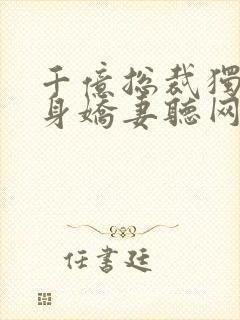 千億总裁獨
身嬌妻聽网
任書廷